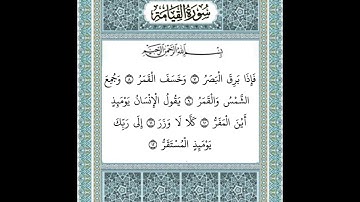 سُورَةُ الْقِيَامَةِ
بِسْمِ اللَّهِ الرَّحْمَٰنِ الرَّحِيمِ
فَإِذَا بَرِقَ الْبَصَرُ ۝٧ وَخَسَفَ الْقَمَرُ ۝٨ وَجُمِعَ
الشَّمْسُ وَالْقَمَرُ ۝٩ يَقُولُ الْإِنْسَانُ يَوْمَئِذٍ
أَيْنَ الْمَفَرُّ ۝١٠ كَلَّا لَا وَزَرَ ۝١١ إِلَى رَبِّكَ
يَوْمَئِذٍ الْمُسْتَقَرُّ ۝١٢